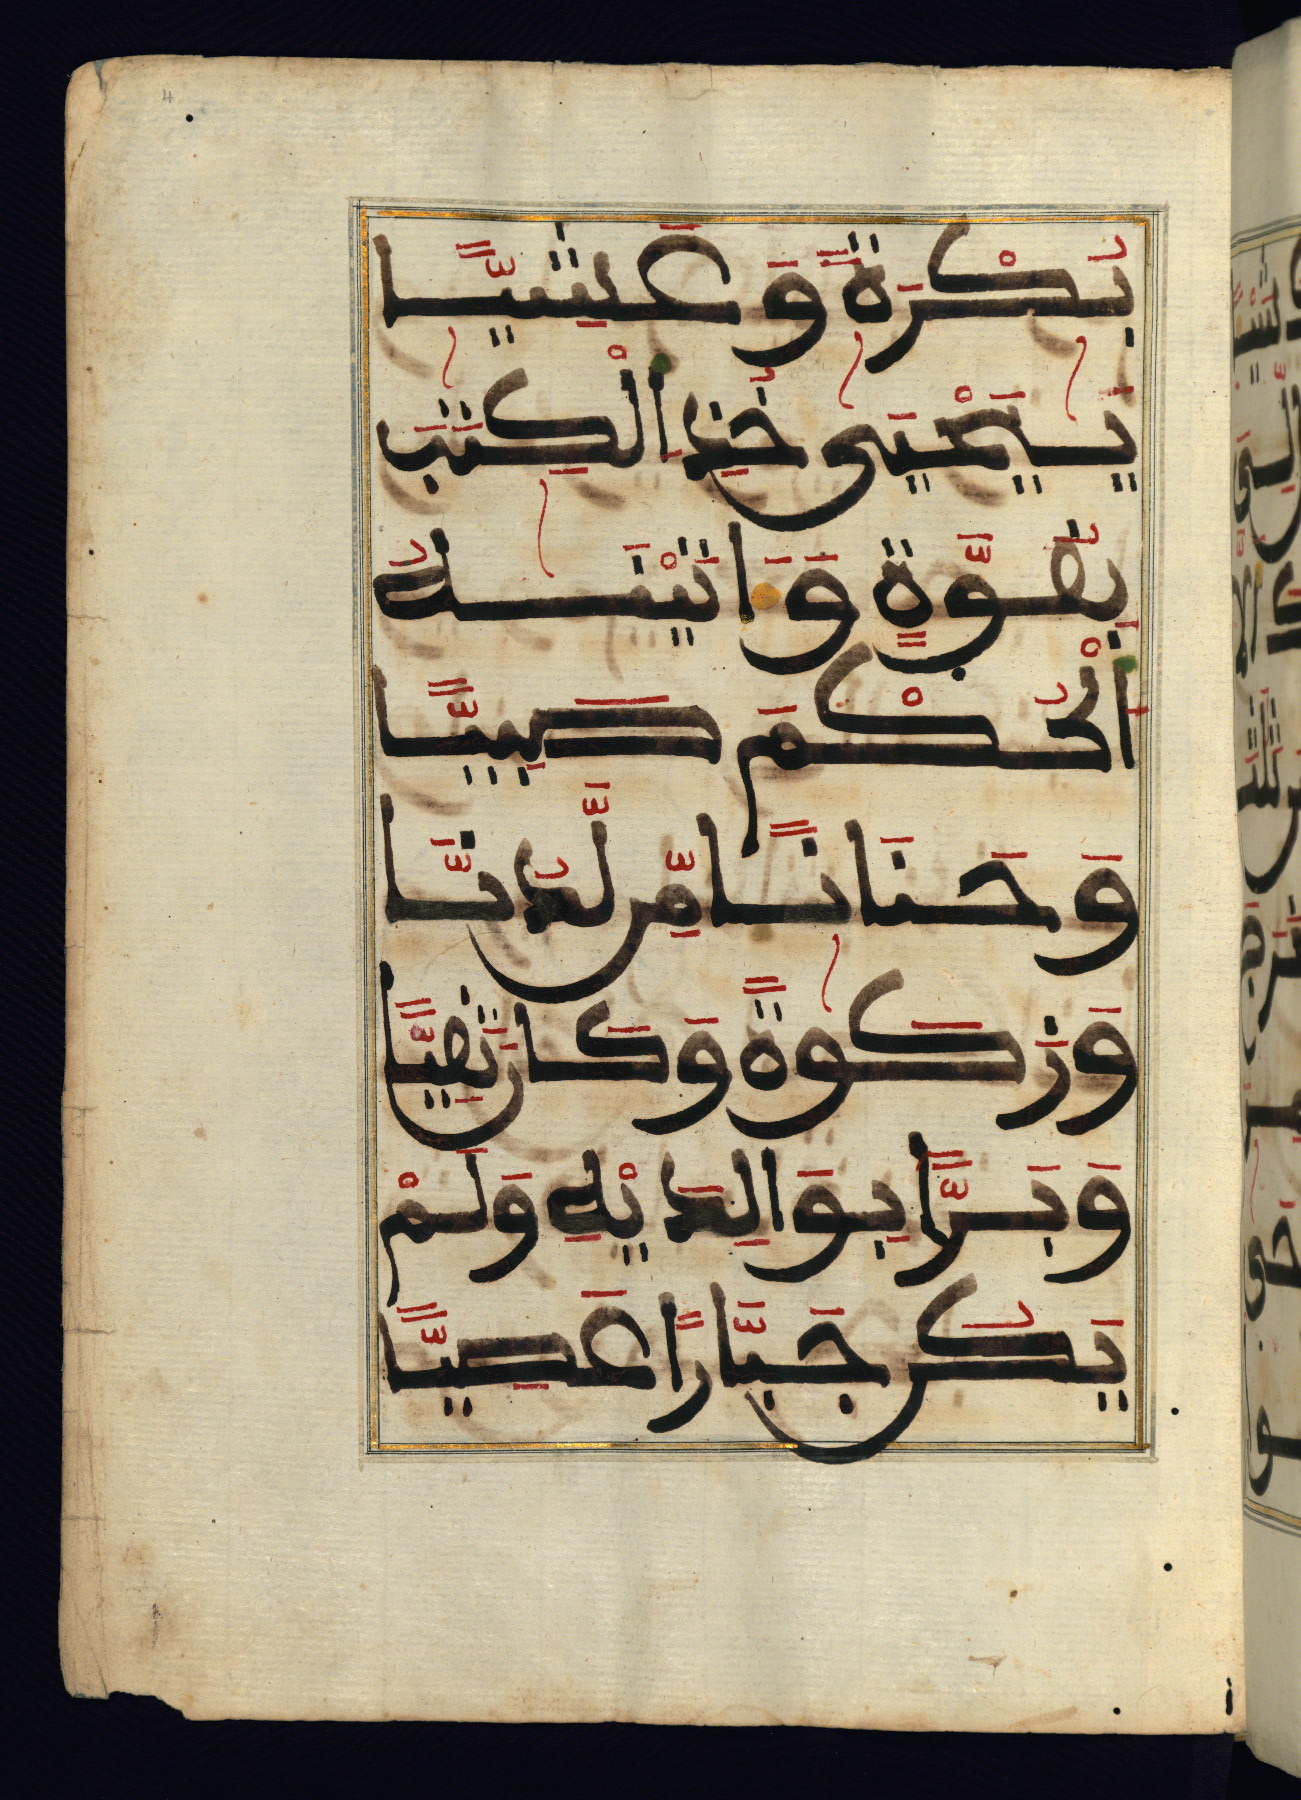 بُكْرَةً وَعَشِيًّا
يَٰيَحْيَىٰ خُذِ الْكِتَٰبَ
بِقُوَّةٍ وَءَاتَيْنَٰهُ
الْحُكْمَ صَبِيًّا
وَحَنَانًا مِّن لَّدُنَّا
وَزَكَوٰةً وَكَانَ تَقِيًّا
وَبَرًّا بِوَالِدَيْهِ وَلَمْ
يَكُن جَبَّارًا عَصِيًّا
4